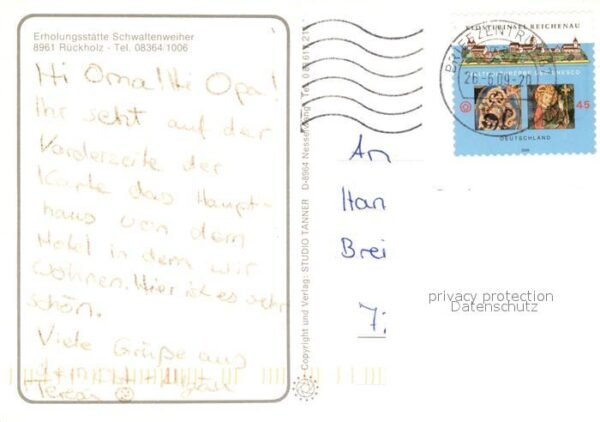 Erholungsstätte Schwaltenweiher
8961 Rückholz - Tel. 08364/1006
Hi Oma! Hi Opa!
Ihr seht auf der
Vorderzeite der
Karte das Haupt-
haus von dem
Hotel in dem wir
wohnen. Hier ist es sehr
schön.
Viele Grüße aus
Copyright und Verlag: STUDIO TANNER D-8964 Nesselwang
KLOSTERINSEL REICHENAU
45
DEUTSCHLAND
BRIEFZENTRUM
An
Han
Brei
7
privacy protection
Datenschutz